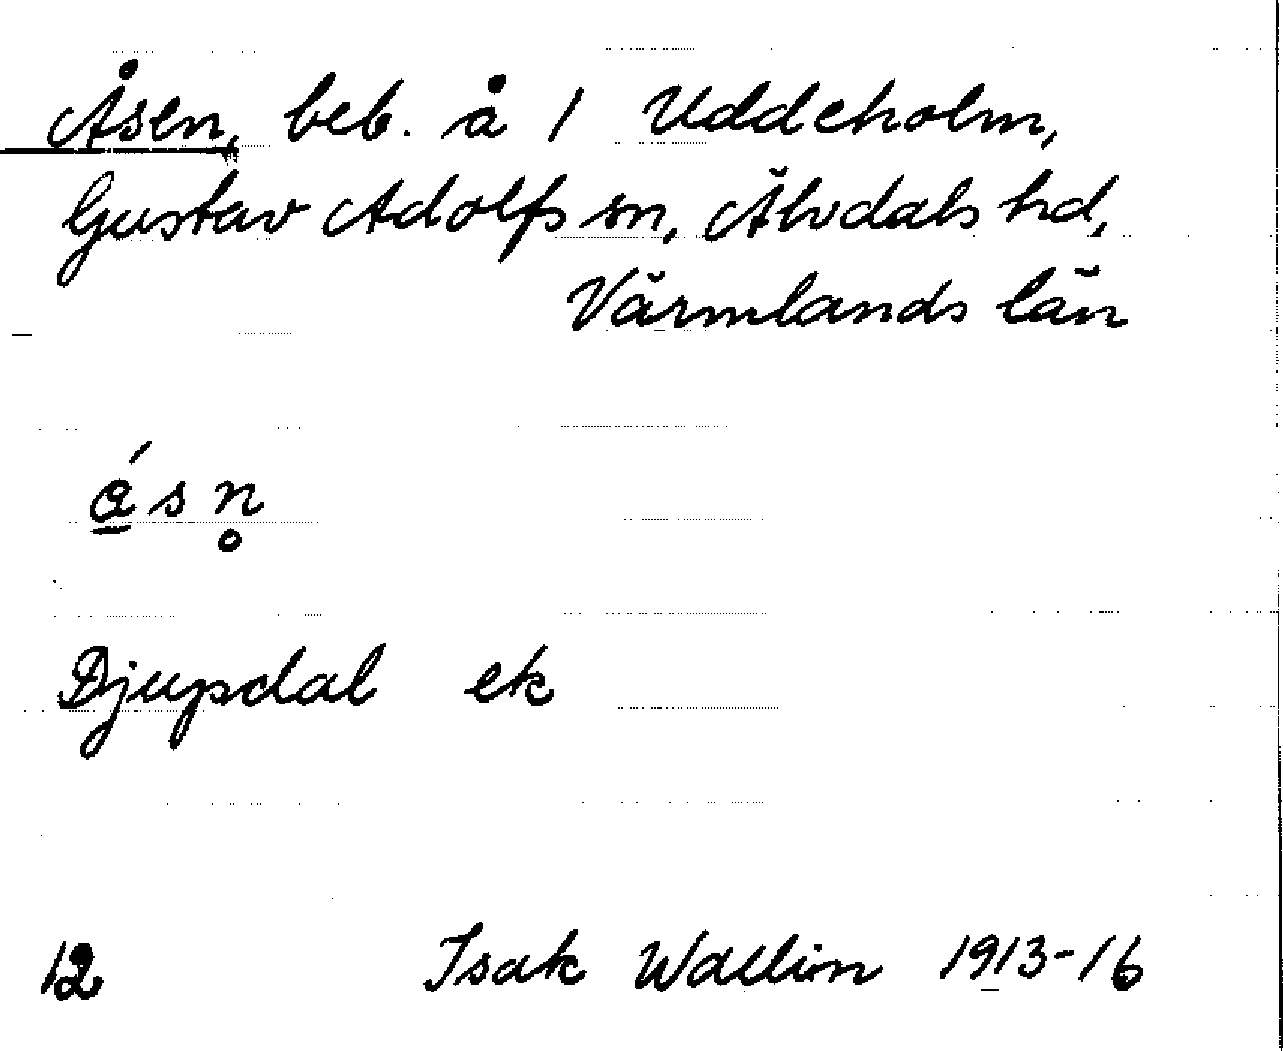 Åsen, beb. å 1 Uddeholm,
Gustav Adolfs sn, Älvdals hd,
Värmlands län
á̱sn̥
Djupdal ek
12 Isak Wallin 1913-16